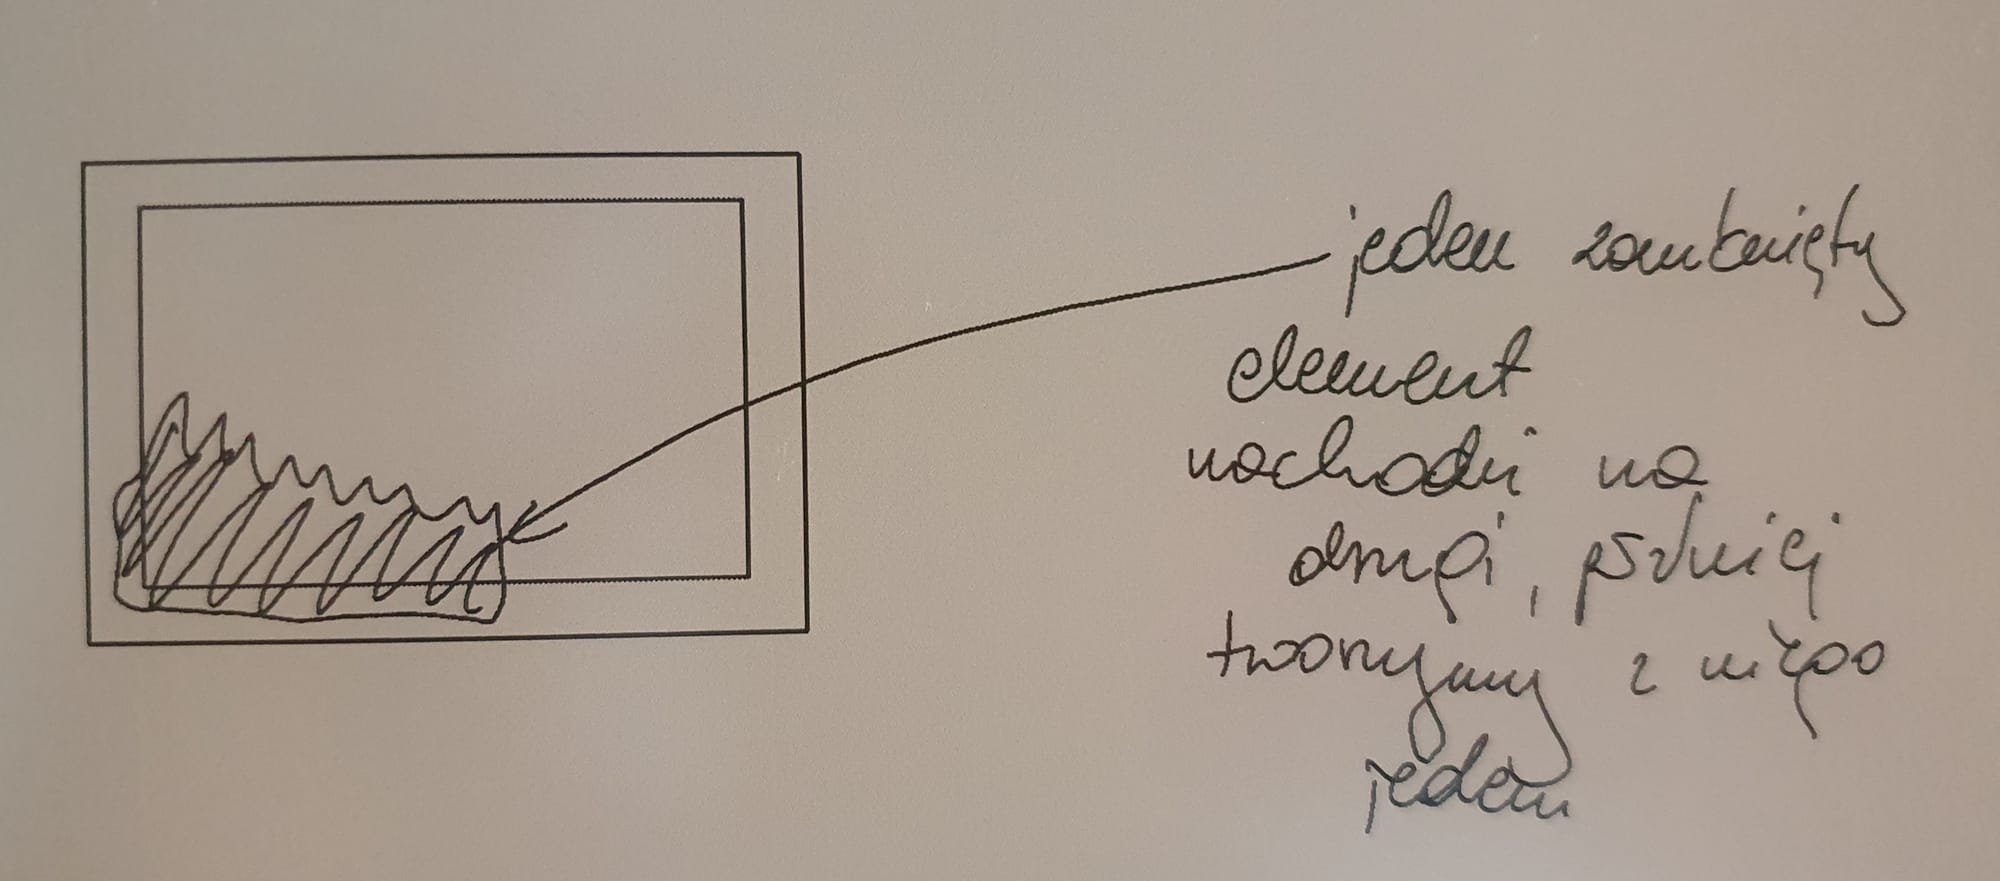 jeden zamknięty
element
nachodzi na
drugi, później
tworzymy z niego
jeden